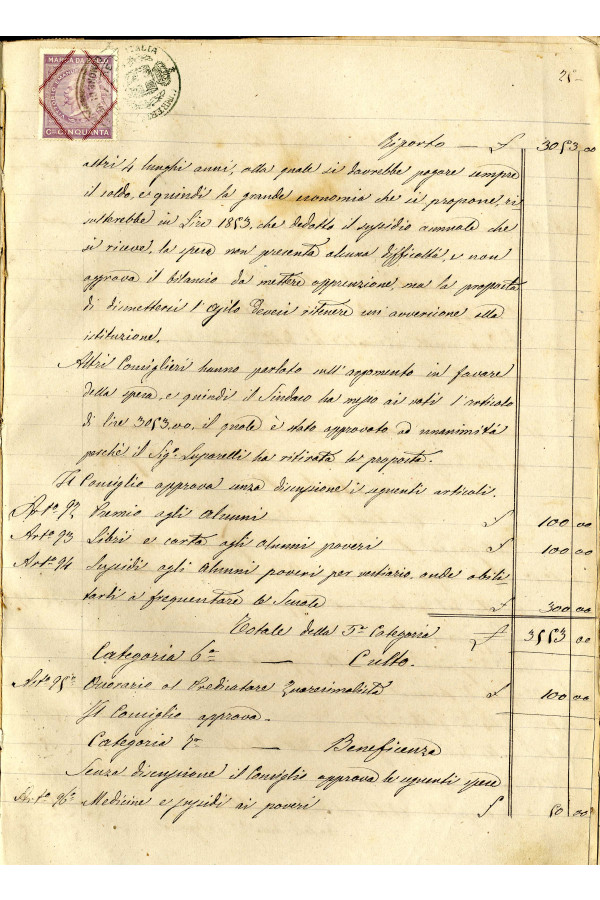 MARCA DA BOLLO
Cmi CINQUANTA
ITALIA
25
Riporto — £ 3053,00
altri 4 lunghi anni, alla quale si dovrebbe pagare sempre
il soldo, e quindi la grande economia che si propone, ri
sulterebbe in Lire 1853, che dedotto il sussidio annuale che
si riceve, la spesa non presenta alcuna difficoltà, e non
aggrava il bilancio da mettere apprenzione, ma la proposta
di dismettersi l'Asilo devesi ritenere un'avversione alla
istituzione.
Altri Consiglieri hanno parlato sull'argomento in favore
della spesa, e quindi il Sindaco ha messo ai voti l'articolo
di lire 3053,00, il quale è stato approvato ad unanimità
perchè il Sigr. Luparelli ha ritirata la proposta.
Il Consiglio approva senza discussione i seguenti articoli.
Arto 92 Premio agli Alunni £ 100 00
Arto 93 Libri e carta agli Alunni poveri £ 100 00
Arto 94 Sussidi agli Alunni poveri per vestiario, onde abili-
tarli a frequentare le Scuole £ 300 00
Totale della 5a Categoria £ 3553 00
Categoria 6a — Culto.
Arto 95 Onorario al Predicatore Quaresimalista £ 100 00
Il Consiglio approva.
Categoria 7a — Beneficenza
Senza discussione il Consiglio approva le seguenti spese
Arto 96 Medicine e sussidi ai poveri £ 50 00